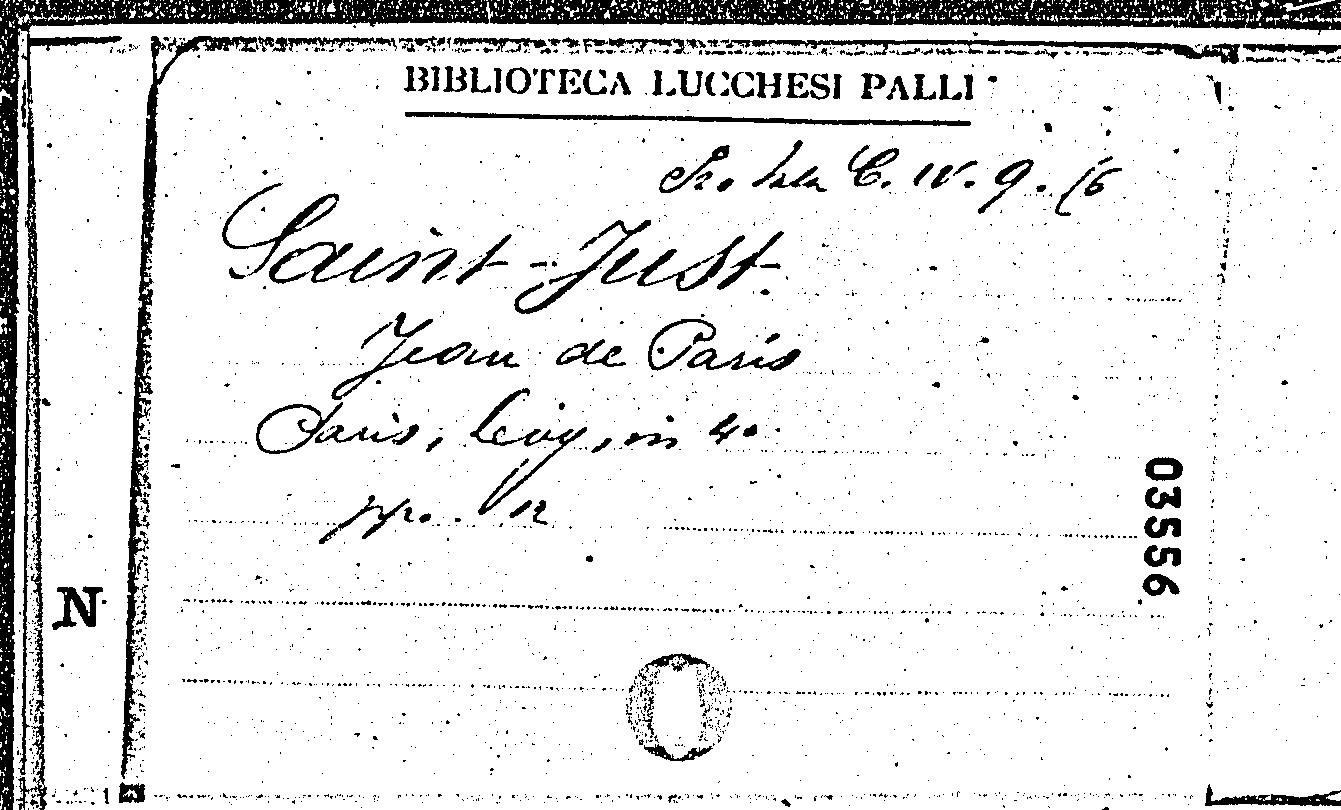 BIBLIOTECA LUCCHESI PALLI
Sala C. IV. 9. 16
Saint-Just.
Jean de Paris
Paris, Lévy, in 4°
pp. 12
03556
N